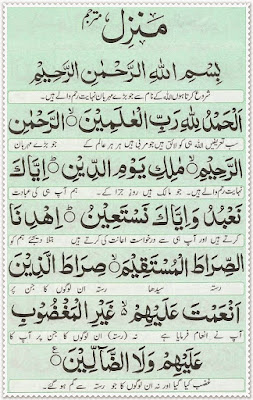 منزل مترجم
بِسْمِ اللهِ الرَّحْمٰنِ الرَّحِيْمِ
شروع کرتا ہوں اللہ کے نام سے جو بڑے مہربان نہایت رحم والے ہیں۔
اَلْحَمْدُ لِلّٰهِ رَبِّ الْعٰلَمِيْنَ ۝ الرَّحْمٰنِ
سب تعریفیں اللہ ہی کو لائق ہیں جو مربی ہیں ہر ہر عالم کے جو بڑے مہربان
الرَّحِيْمِ ۝ مٰلِكِ يَوْمِ الدِّيْنِ ۝ اِيَّاكَ
نہایت رحم والے ہیں۔ جو مالک ہیں روز جزا کے۔ ہم آپ ہی کی عبادت
نَعْبُدُ وَاِيَّاكَ نَسْتَعِيْنُ ۝ اِهْدِنَا
کرتے ہیں اور آپ ہی سے درخواست اعانت کی کرتے ہیں بتلا دیجئے ہم کو
الصِّرَاطَ الْمُسْتَقِيْمَ ۝ صِرَاطَ الَّذِيْنَ
رستہ سیدھا رستہ ان لوگوں کا جن پر
اَنْعَمْتَ عَلَيْهِمْ ۙ غَيْرِ الْمَغْضُوْبِ
آپ نے انعام فرمایا ہے نہ (رستہ) ان لوگوں کا جن پر آپ کا
عَلَيْهِمْ وَلَا الضَّآلِّيْنَ ۝
غضب کیا گیا اور نہ ان لوگوں کا جو رستہ سے گم ہو گئے۔